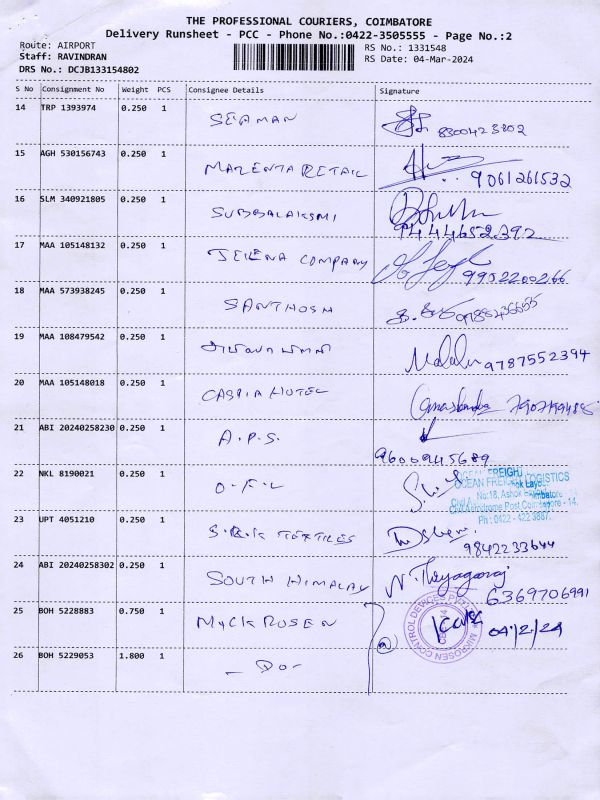 THE PROFESSIONAL COURIERS, COIMBATORE
Delivery Runsheet - PCC - Phone No.:0422-3505555 - Page No.:2
Route: AIRPORT RS No.: 1331548
Staff: RAVINDRAN RS Date: 04-Mar-2024
DRS No.: DCJB133154802
S No Consignment No Weight PCS Consignee Details Signature
14 TRP 1393974 0.250 1 SEAMAN 8300423802
15 AGH 530156743 0.250 1 MAZENTA RETAIL 9061261532
16 SLM 340921805 0.250 1 SUBBALAKSMI 9444652392
17 MAA 105148132 0.250 1 COMPANY 9952200266
18 MAA 573938245 0.250 1 SANTHOSH
19 MAA 108479542 0.250 1 9787552394
20 MAA 105148018 0.250 1 CASRIA HOTEL
21 ABI 20240258230 0.250 1 A.P.S. 9600945689
22 NKL 8190021 0.250 1 O.F.L
OCEAN FREIGHT LOGISTICS
No:18, Ashok
Civil Aerodrome Post, Coimbatore - 14.
Ph : 0422 - 422 3887.
23 UPT 4051210 0.250 1 TEXTILES 9842233644
24 ABI 20240258302 0.250 1 SOUTH HIMALAY N. Thyagaraj 6369706991
25 BOH 5228883 0.750 1 MYCKROSEN 04.2.24
MIKROSEN CONTROL DEVICES PVT LTD
26 BOH 5229053 1.800 1 - Do -